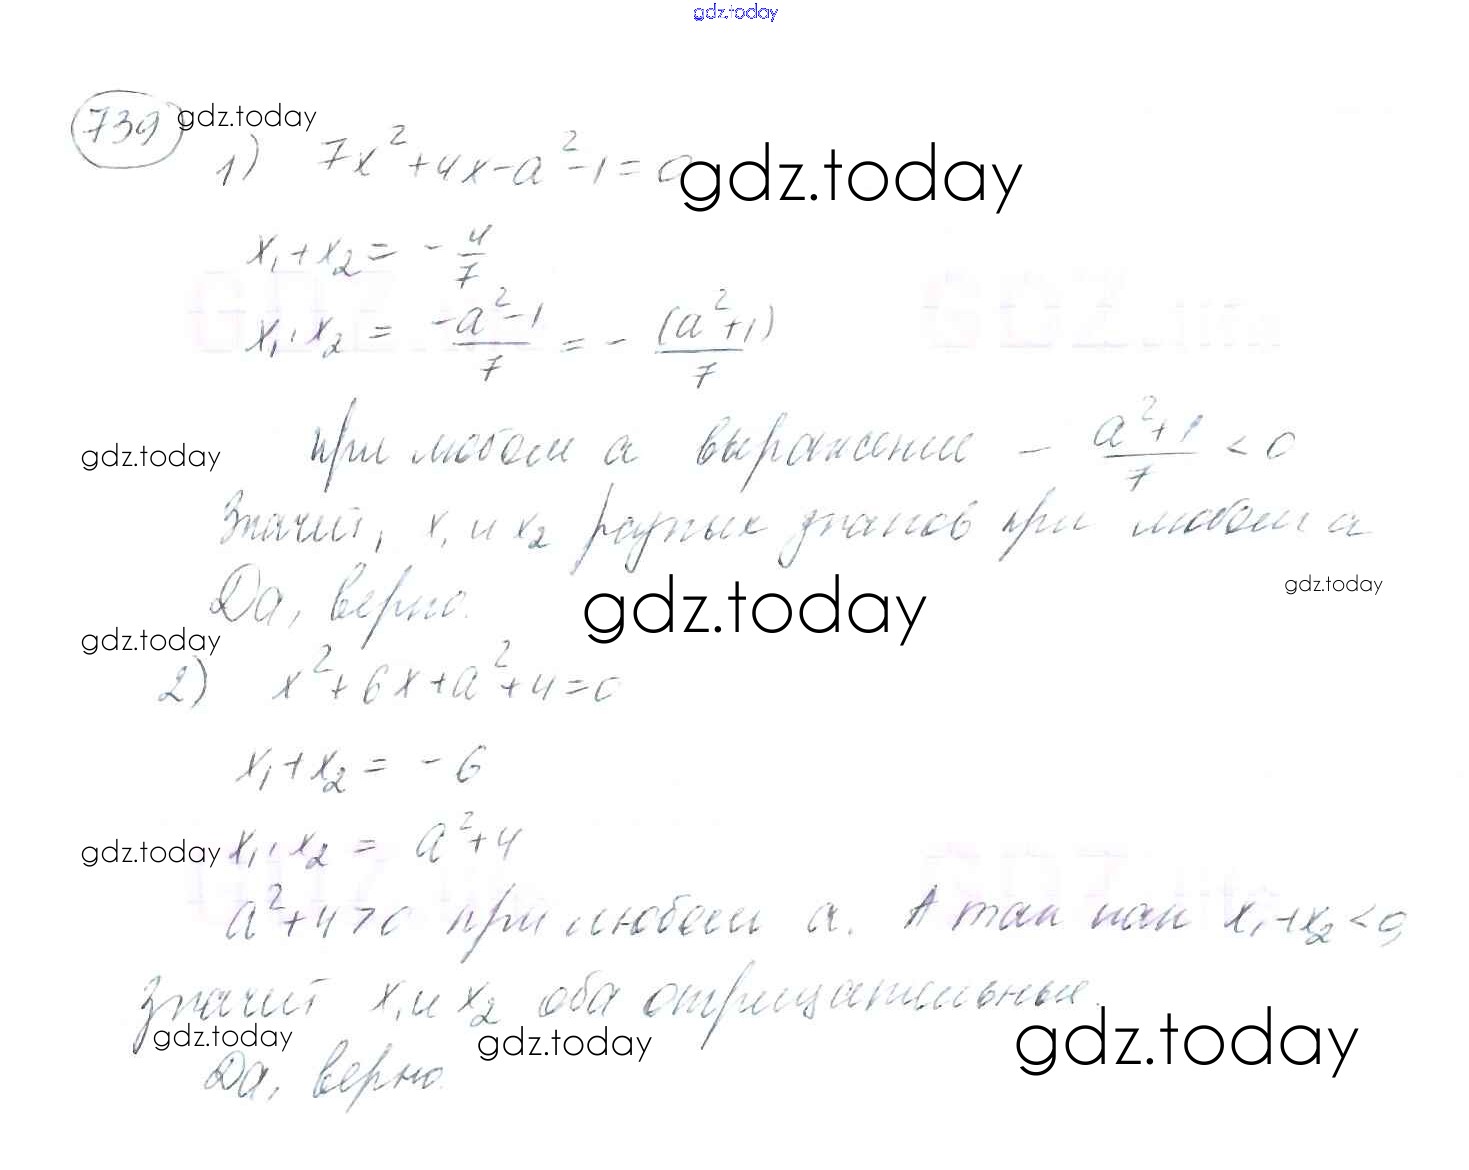 gdz.today
739 gdz.today
1) 7x² + 4x - a² - 1 = 0 gdz.today
x₁ + x₂ = - 4/7
x₁ · x₂ = (-a² - 1)/7 = - (a² + 1)/7
gdz.today при любом a выражение - (a² + 1)/7 < 0
Значит, x₁ и x₂ разных знаков при любом a
Да, верно. gdz.today gdz.today
gdz.today
2) x² + 6x + a² + 4 = 0
x₁ + x₂ = - 6
gdz.today x₁ · x₂ = a² + 4
a² + 4 > 0 при любом a. А так как x₁ + x₂ < 0,
значит x₁ и x₂ оба отрицательные.
gdz.today gdz.today gdz.today
Да, верно.